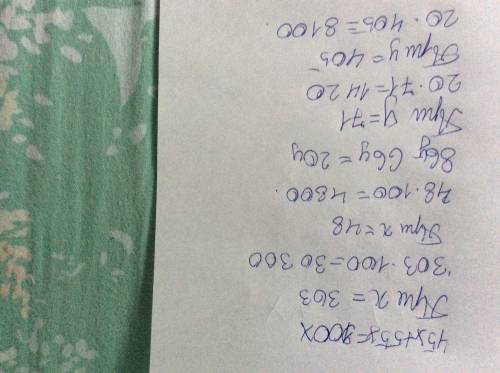 45x+55x=100x
При x = 303
303·100=30 300
При x=48
48·100 = 4800.
86y 66y = 20y
При y=71
20·71=1420
При y = 405
20·405=8100.